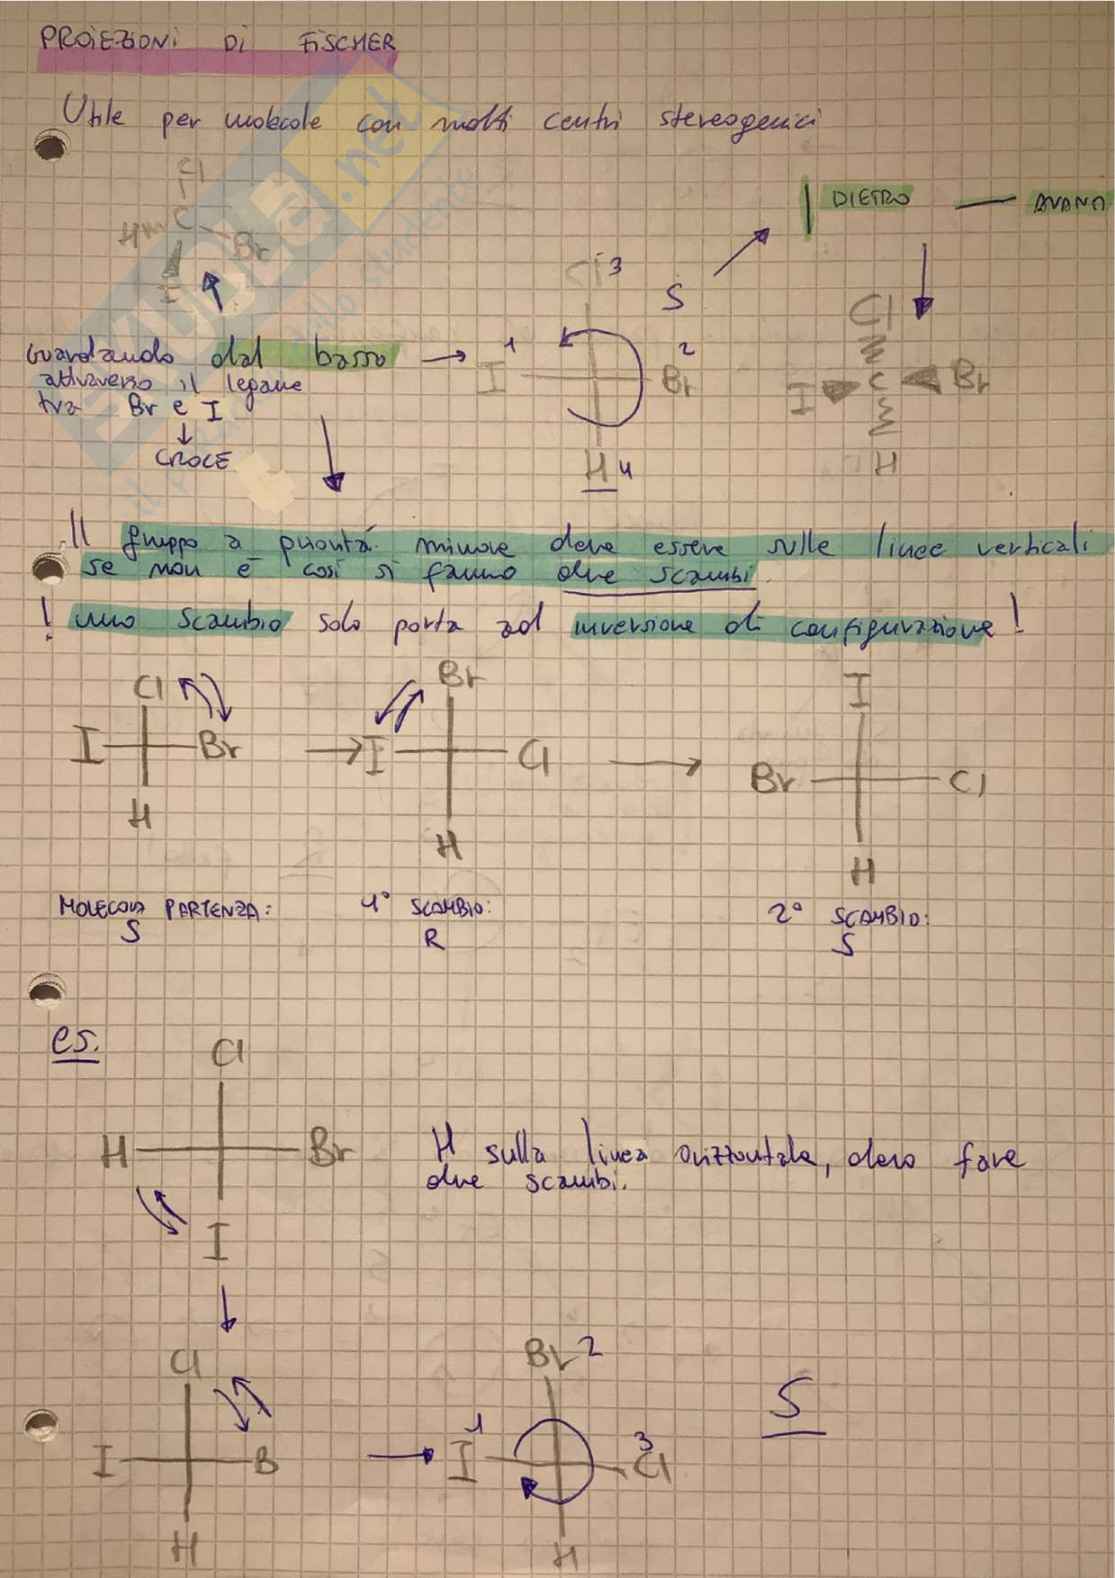 PROIEZIONI DI FISCHER
Utile per molecole con molti centri stereogenici
Cl
H C Br
I
| DIETRO — AVANTI
Cl 3
S
1 I Br 2
H 4
Cl
I C Br
H
Guardando dal basso
attraverso il legame
tra Br e I
↓
CROCE
Il gruppo a priorità minore deve essere sulle linee verticali
se non è così si fanno due scambi.
! uno scambio solo porta ad inversione di configurazione!
Cl
I Br
H
Br
I Cl
H
I
Br Cl
H
MOLECOLA PARTENZA:
S
1° SCAMBIO:
R
2° SCAMBIO:
S
es.
Cl
H Br
I
H sulla linea orizzontale, devo fare
due scambi.
Cl
I B
H
Br 2
1 I 3 Cl
H
S